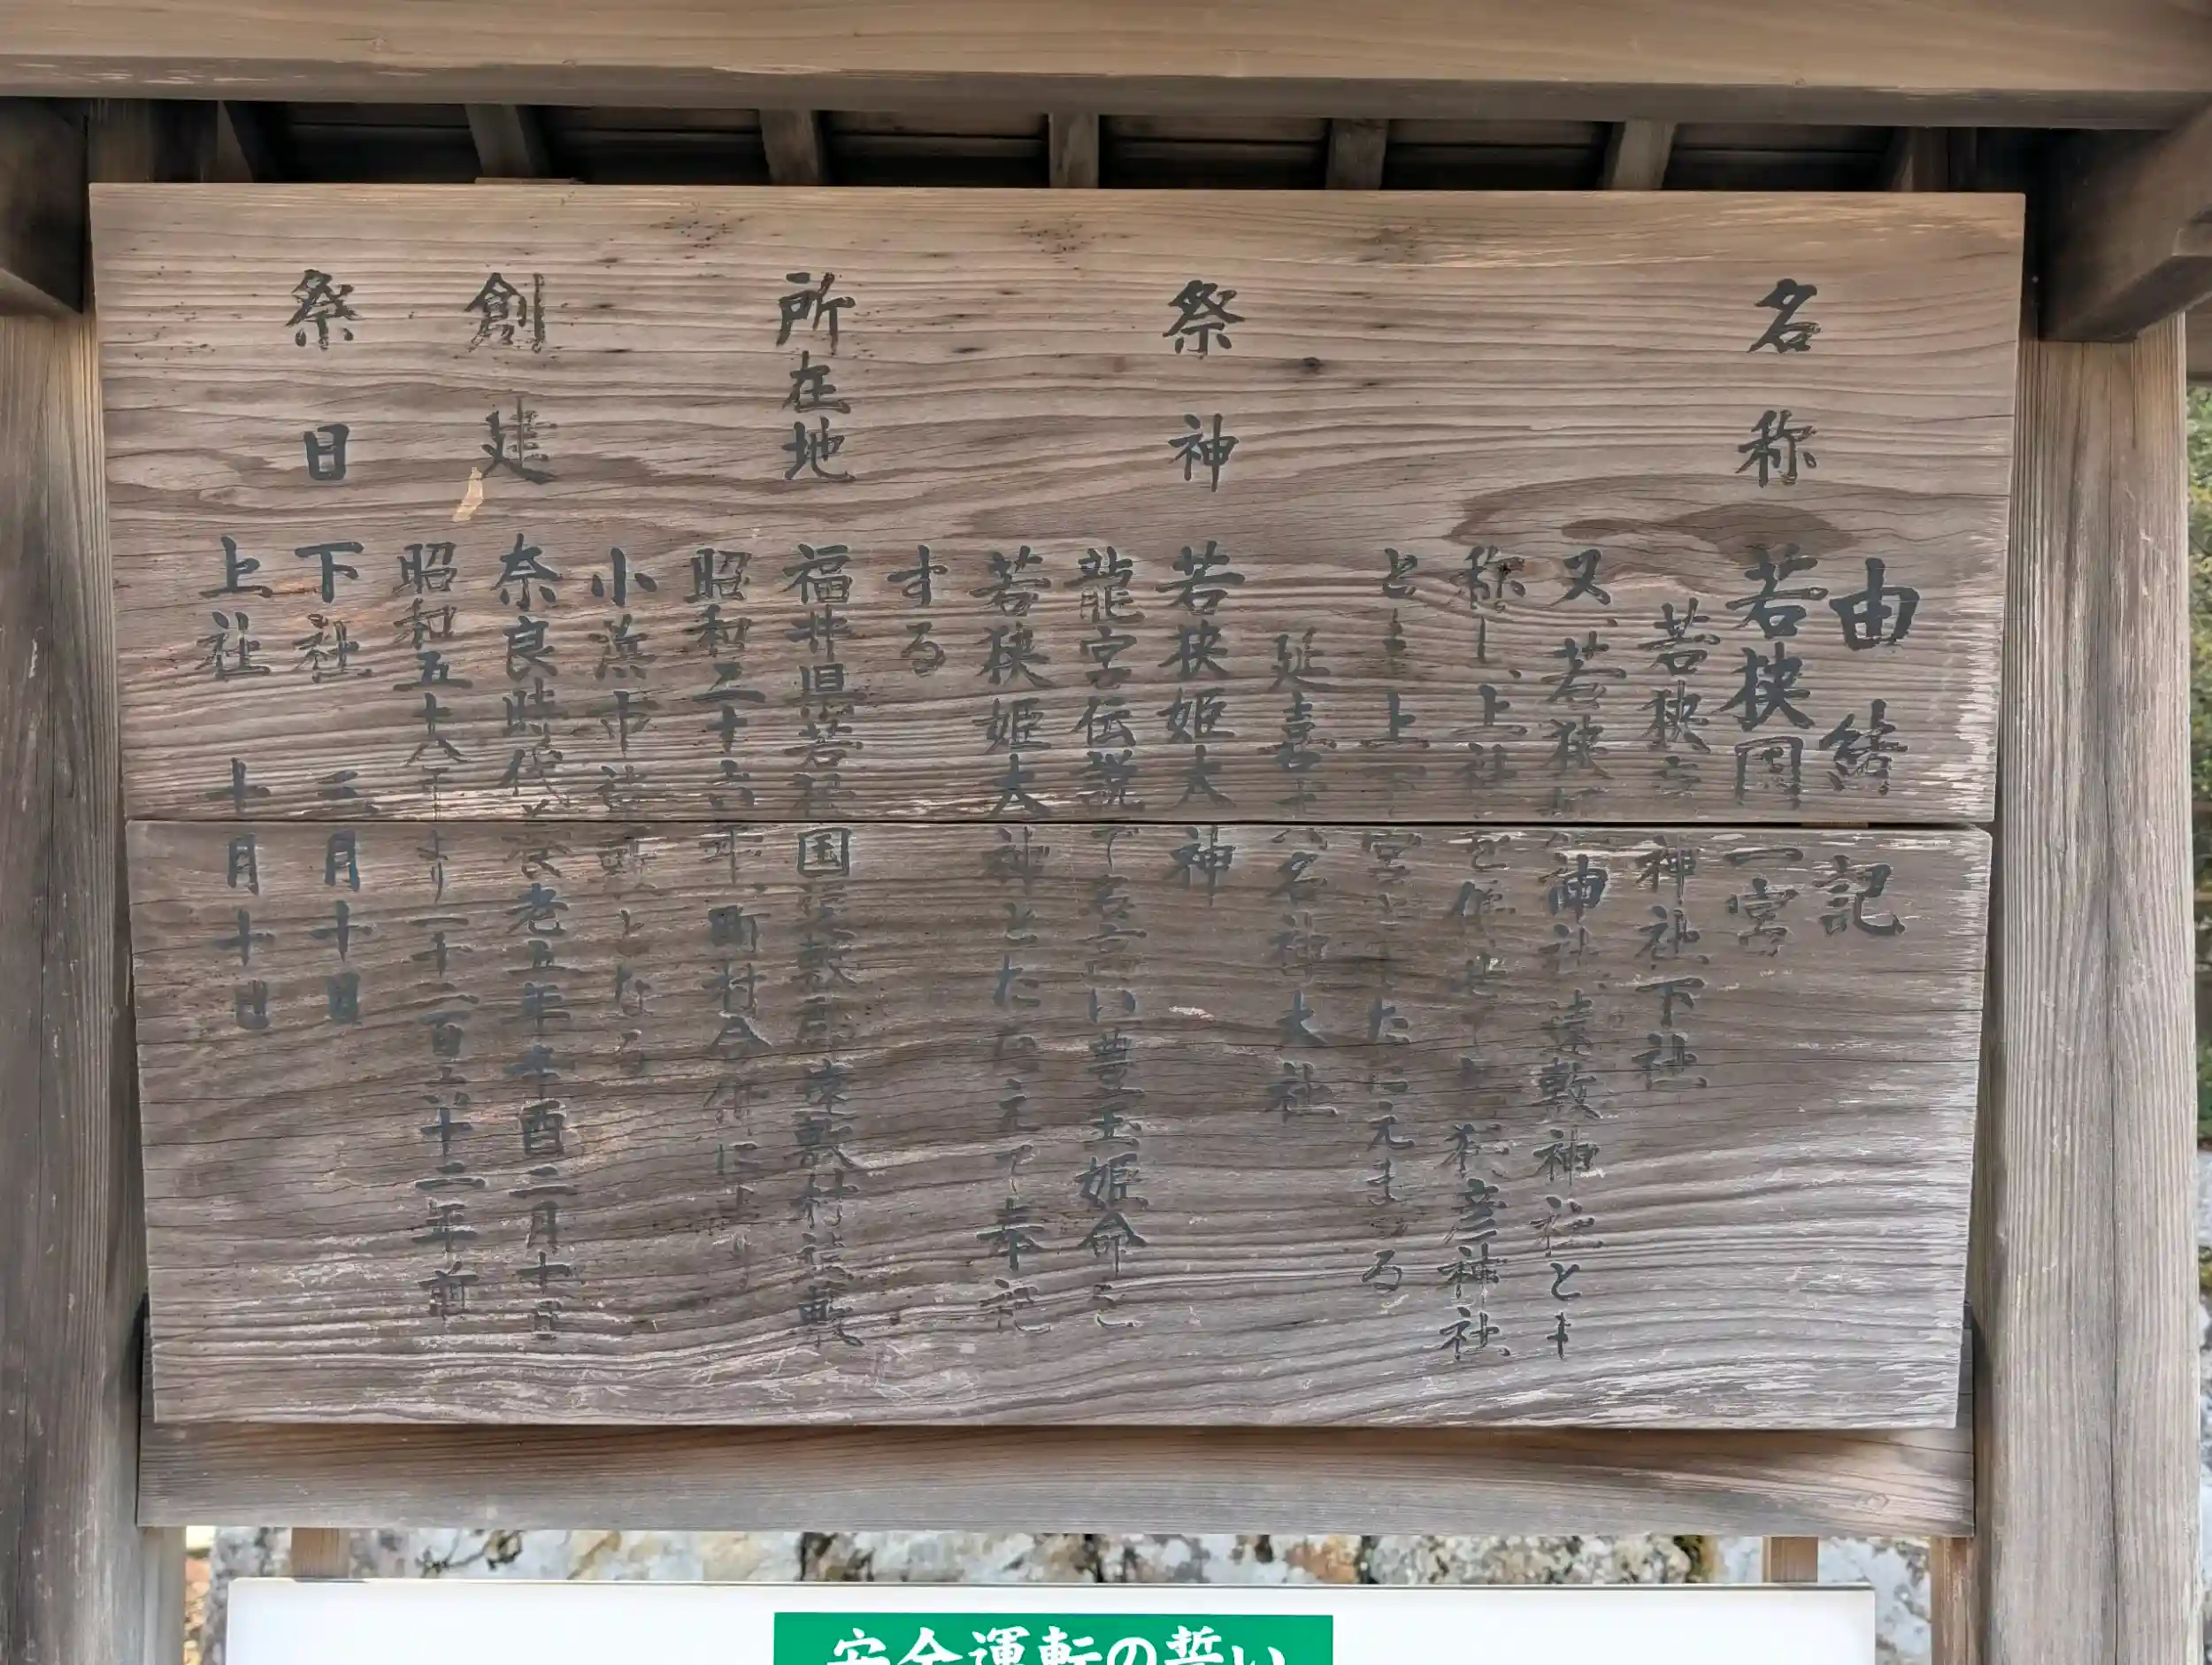 由緒記
名称 若狭国一宮
若狭 神社下社
又、若狭 神社、遠敷神社とも
称し、上社を 彦神社
とも上下宮と たたえまつる
延喜 名神大社
祭神 若狭姫大神
龍宮伝説で名高い豊玉姫命を
若狭姫大神とたたえて奉祀
する
所在地 福井県若狭国遠敷郡遠敷村遠敷
昭和二十六年、町村合併により
小浜市遠敷となる
創建 奈良時代 養老五年辛酉二月十日
昭和五十八年より一千二百六十二年前
祭日 下社 三月十日
上社 十月十日
安全運転の誓い